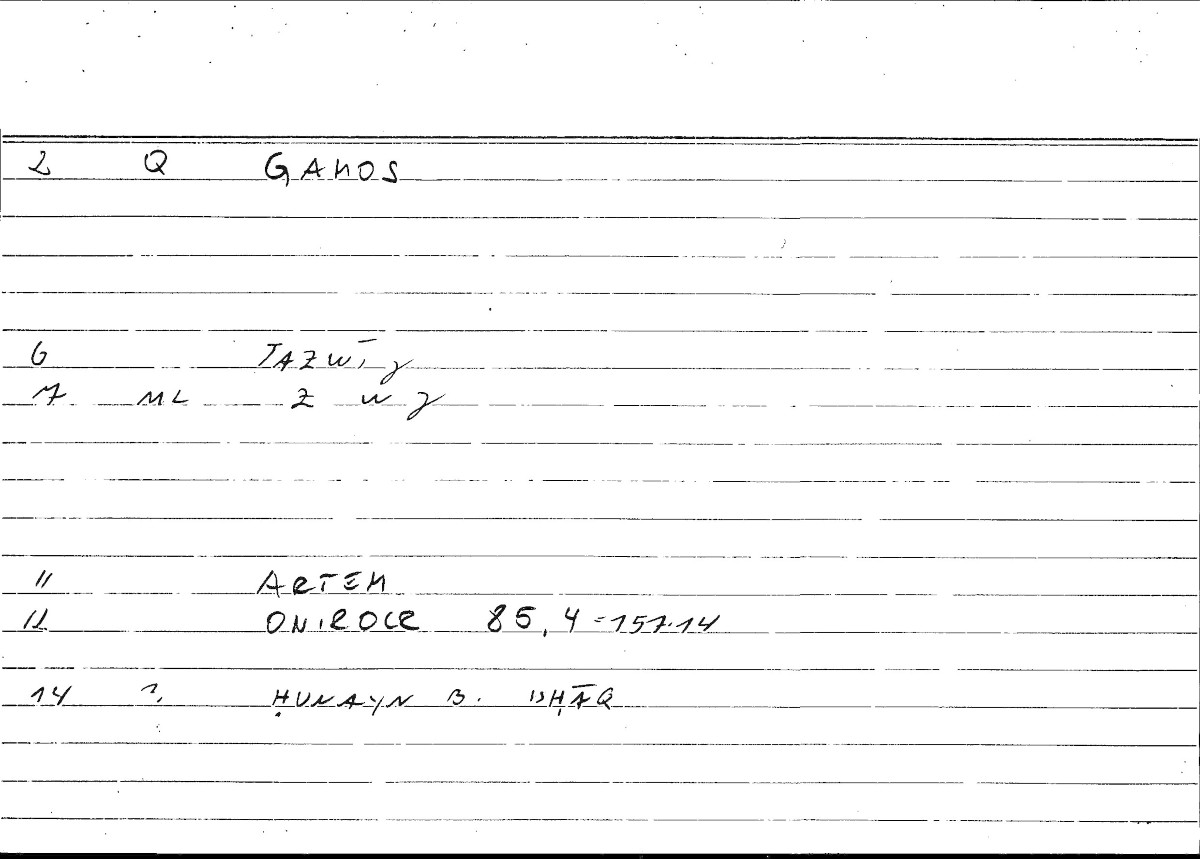 2 Q GAMOS
6 TAZWĪǧ
7 ML Z W ǧ
11 ARTEM
12 ONIROCR 85,4 = 157.14
14 ? ḤUNAYN B. ISḤĀQ